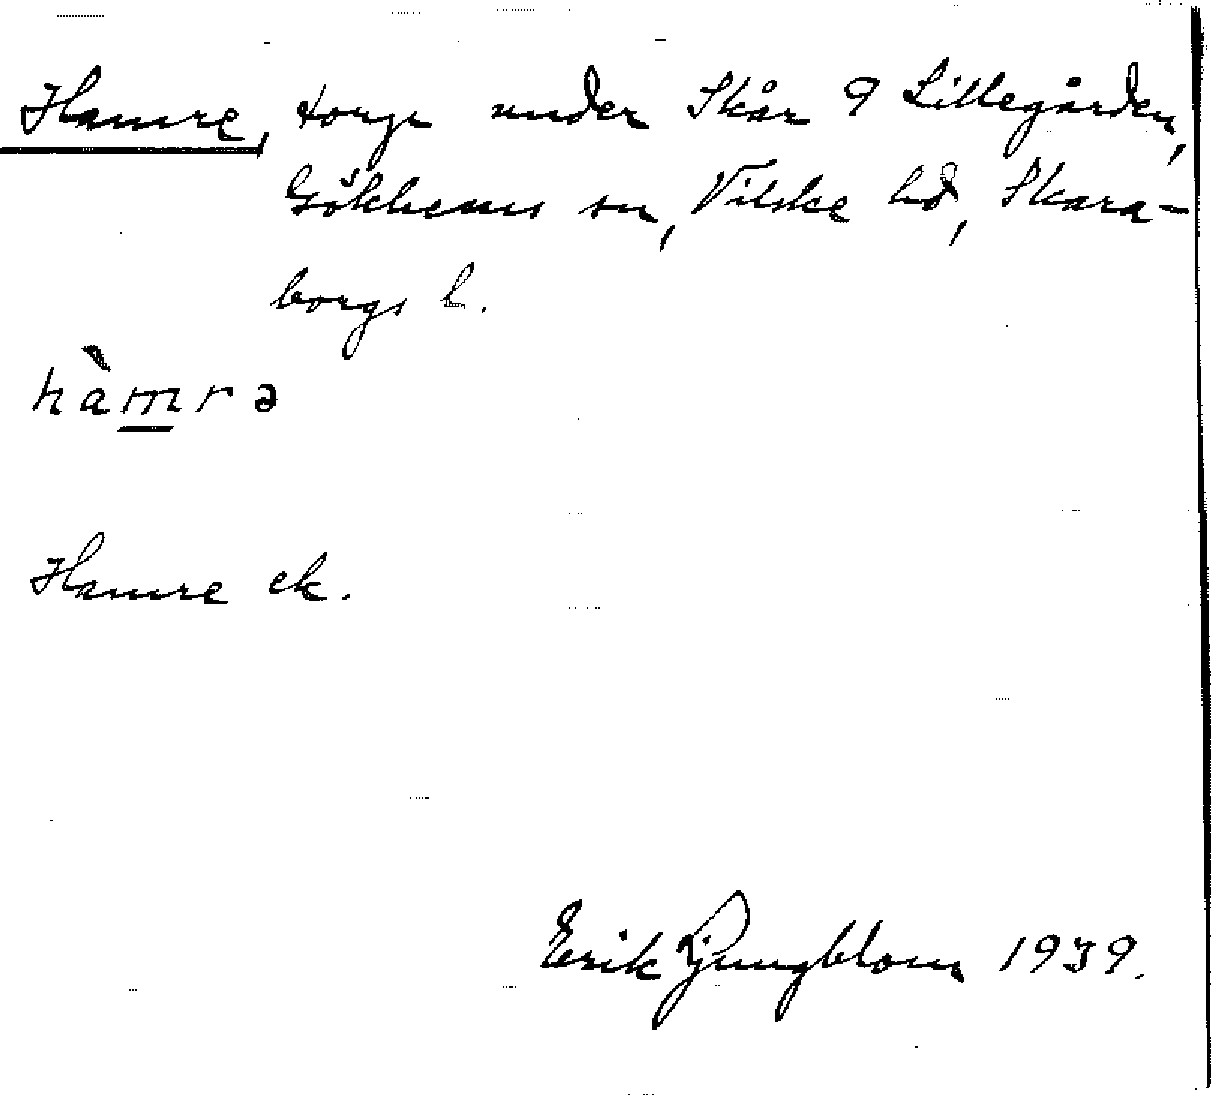 Hamre, torp under Skår 9 Lillegården,
Gökhems sn, Vilske hd, Skara-
borgs l.
hàmrə
Hamre ek.
Erik Ljungblom 1939.